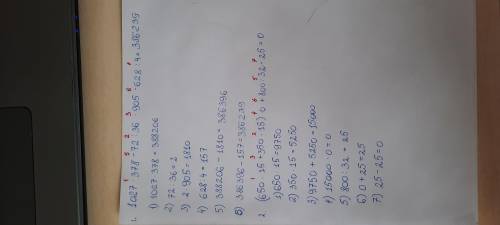 1. 1027 · 378 - 72 : 36 · 905 - 628 : 4 = 386239
1) 1027 · 378 = 388206
2) 72 : 36 = 2
3) 2 · 905 = 1810
4) 628 : 4 = 157
5) 388206 - 1810 = 386396
6) 386396 - 157 = 386239
2. (650 · 15 + 350 · 15) · 0 + 800 : 32 - 25 = 0
1) 650 · 15 = 9750
2) 350 · 15 = 5250
3) 9750 + 5250 = 15000
4) 15000 · 0 = 0
5) 800 : 32 = 25
6) 0 + 25 = 25
7) 25 - 25 = 0